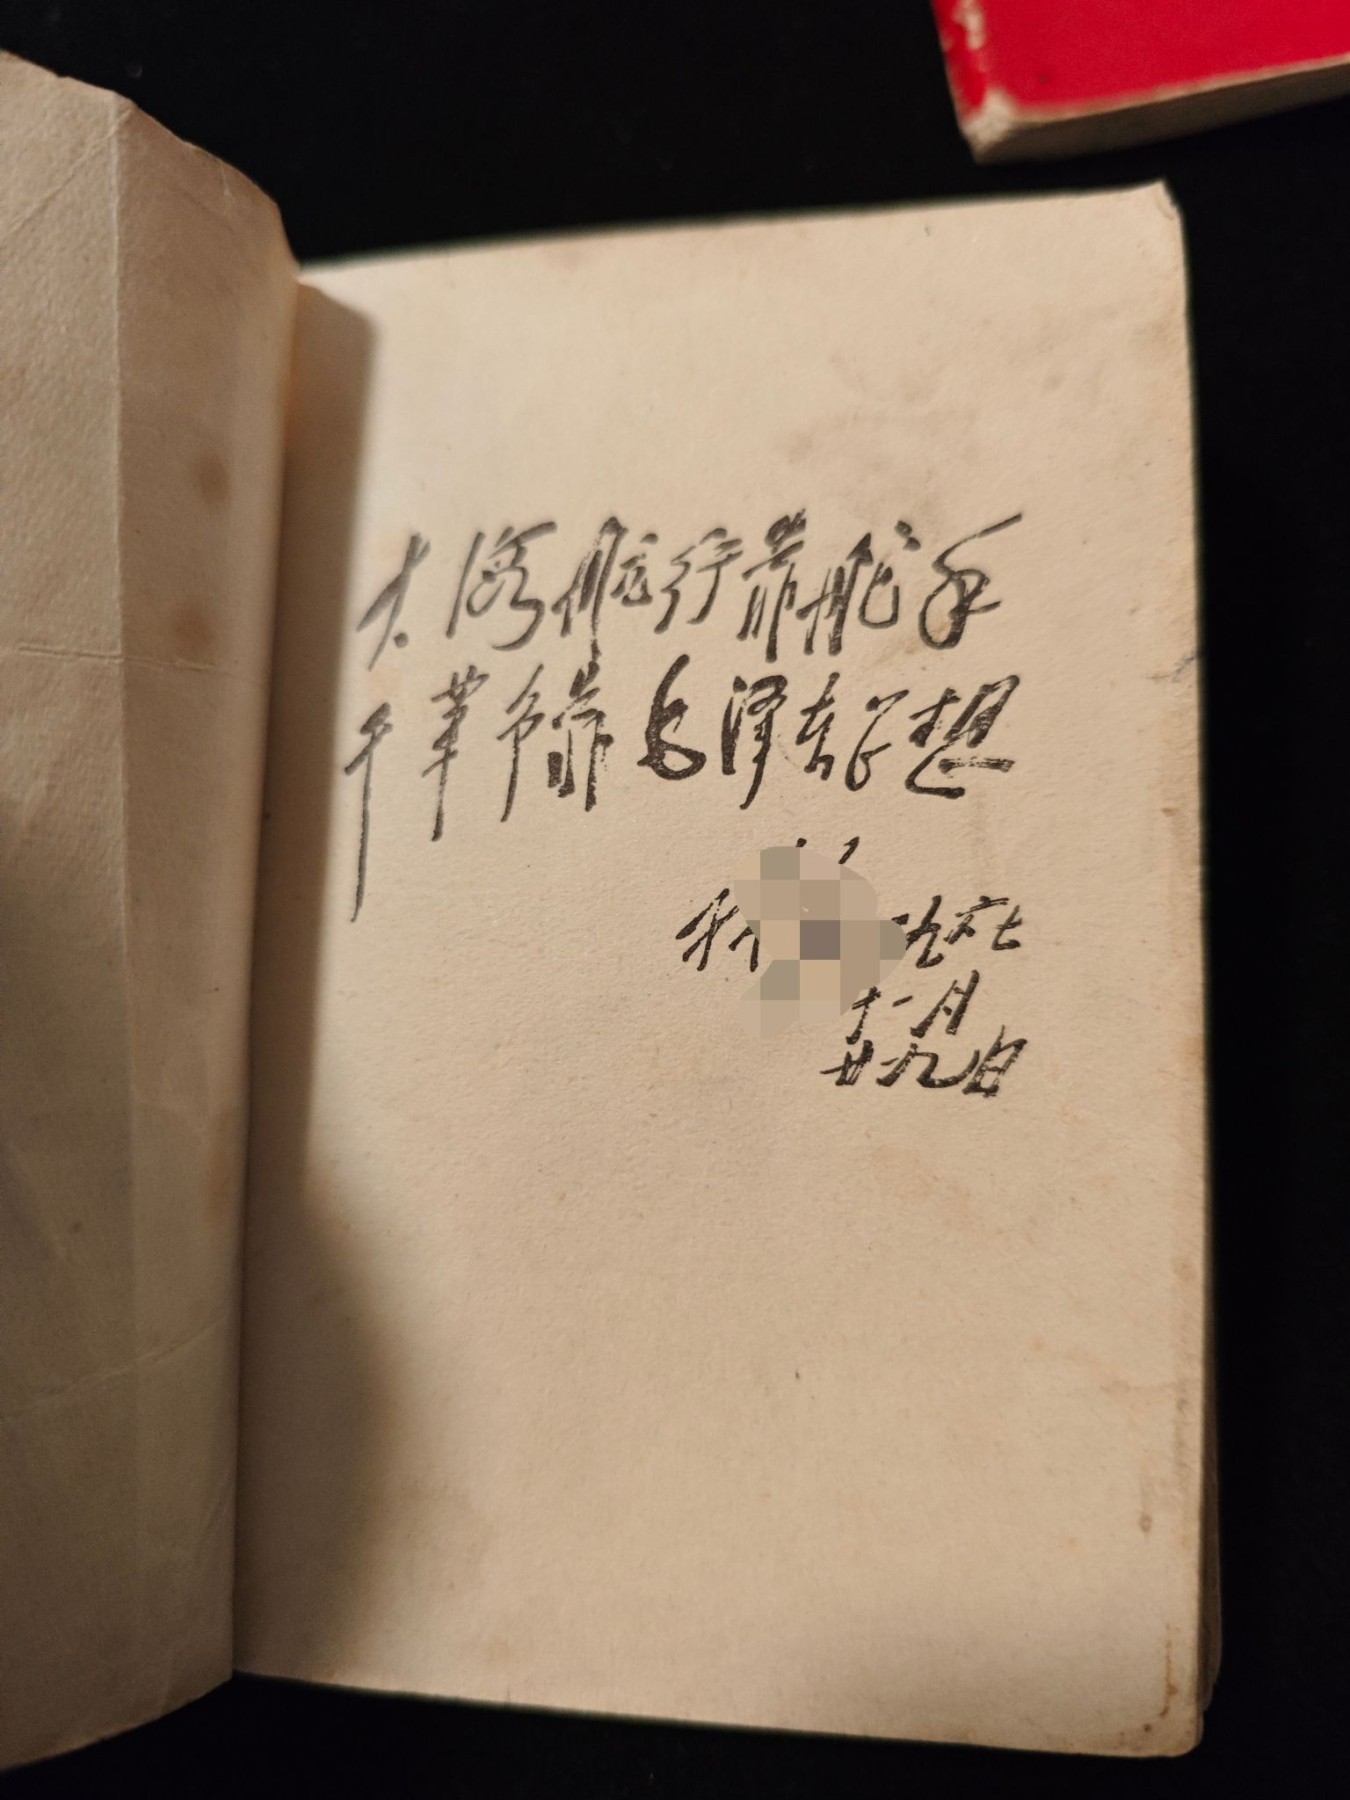 大海航行靠舵手
干革命靠毛泽东思想
林 一九六七
十一月
廿九日